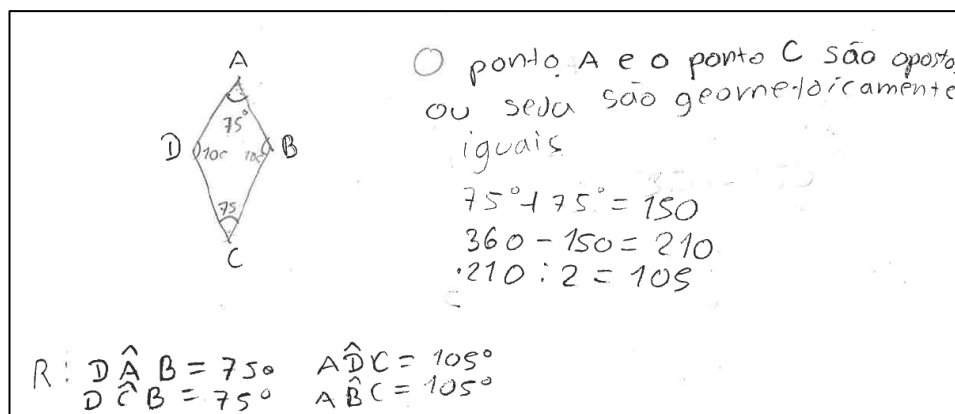 A
75°
D 10c 10c B
75
C
O ponto A e o ponto C são oposto
ou seja são geometricamente
iguais
75° + 75° = 150
360 - 150 = 210
210 : 2 = 105
R: DÂB = 75° AD̂C = 105°
DĈB = 75° AB̂C = 105°